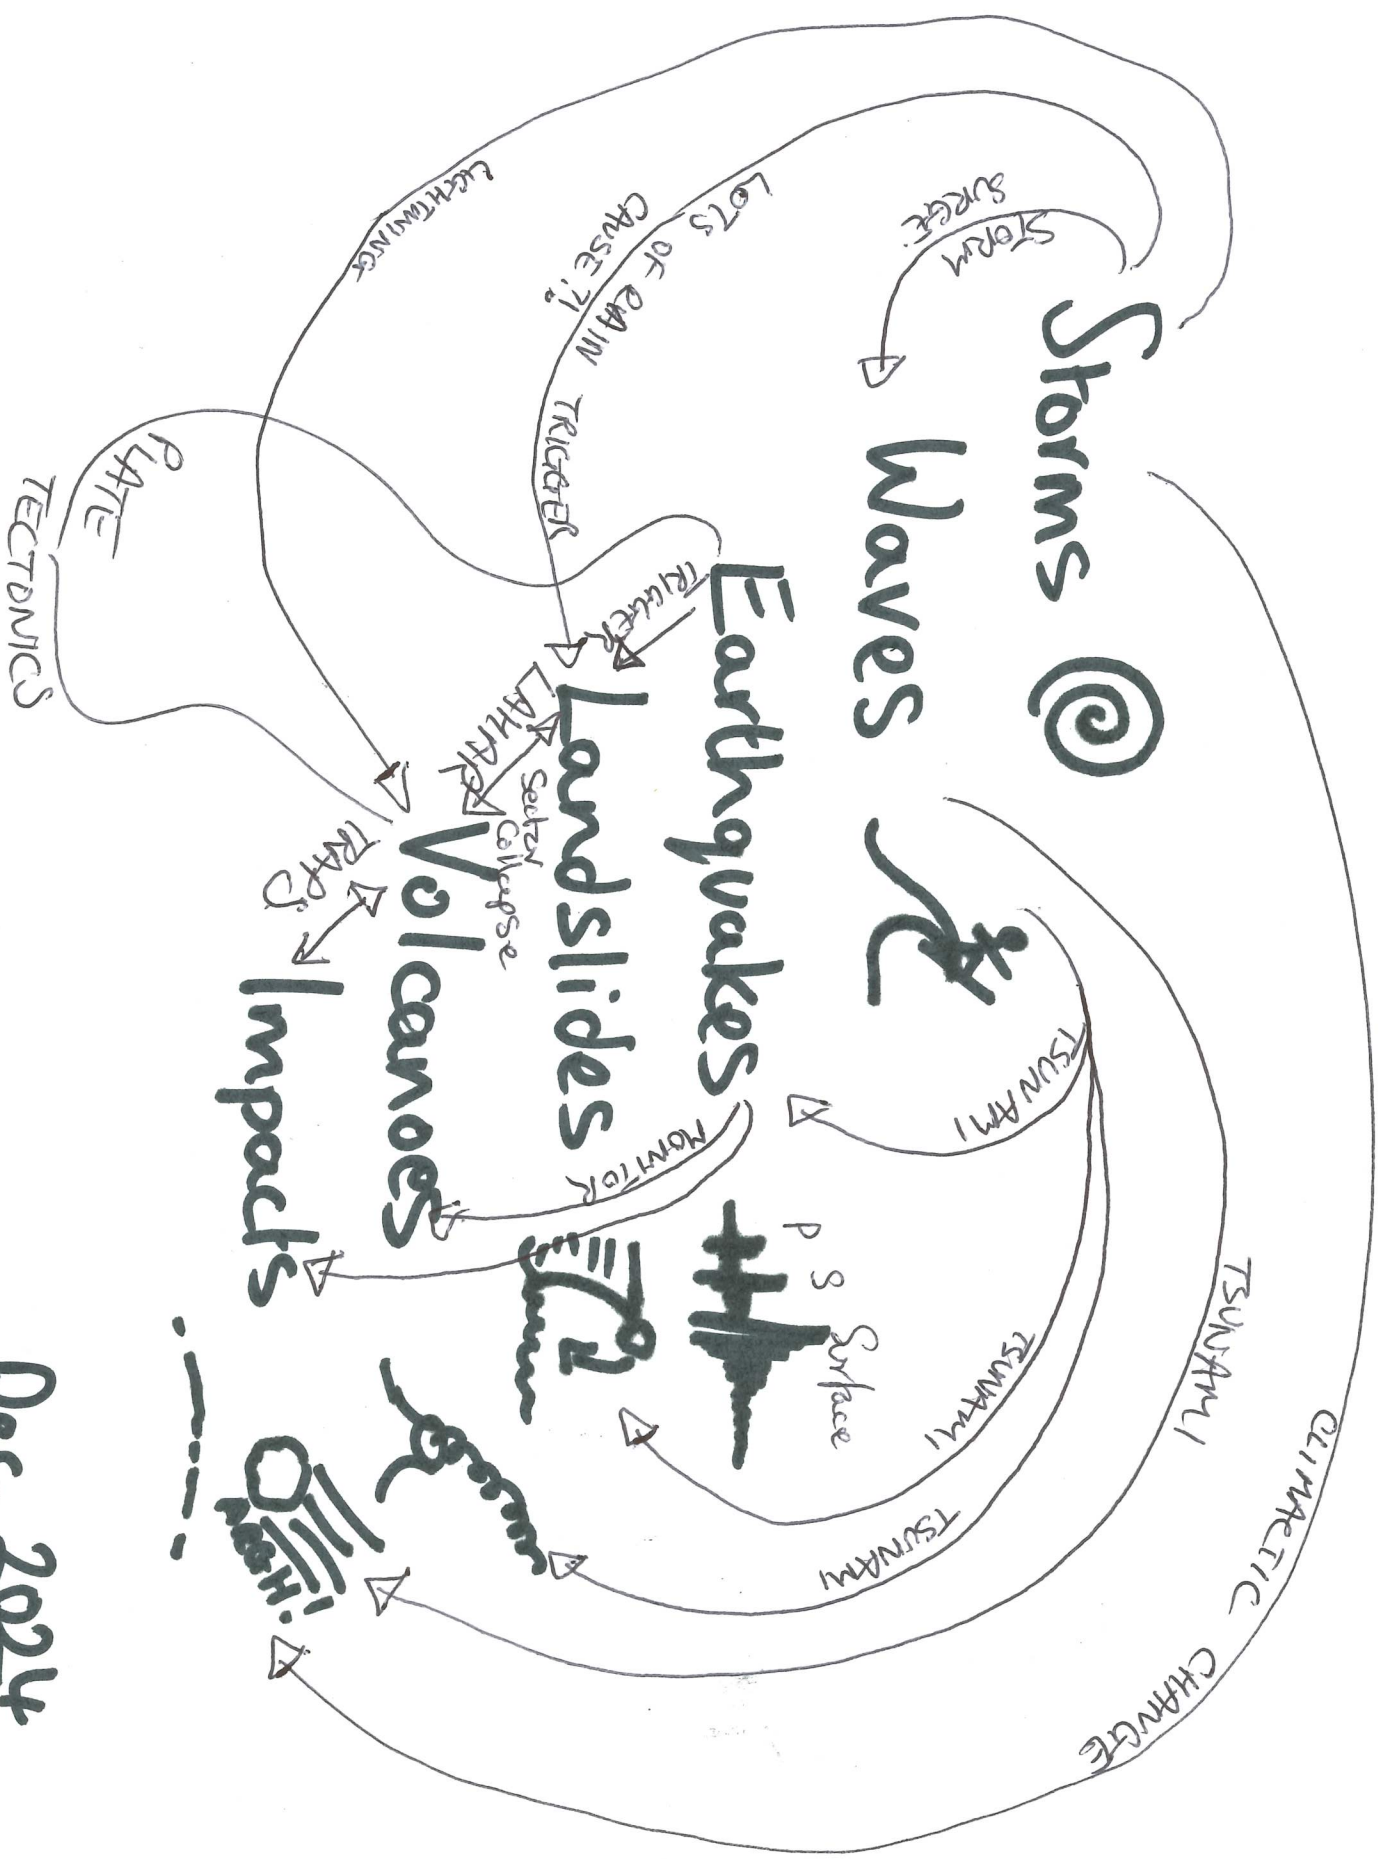 Storms
Waves
Earthquakes
Landslides
Volcanoes
Impacts
STORM
SURGE
LOTS OF RAIN TRIGGER
CAUSE?!
LIGHTNING
PLATE
TECTONICS
TRIGGER
LAHAR
Sector
Collapse
TRAPS
MONITOR
P S Surface
TSUNAMI
TSUNAMI
TSUNAMI
TSUNAMI
CLIMACTIC CHANGE
Dec 2024